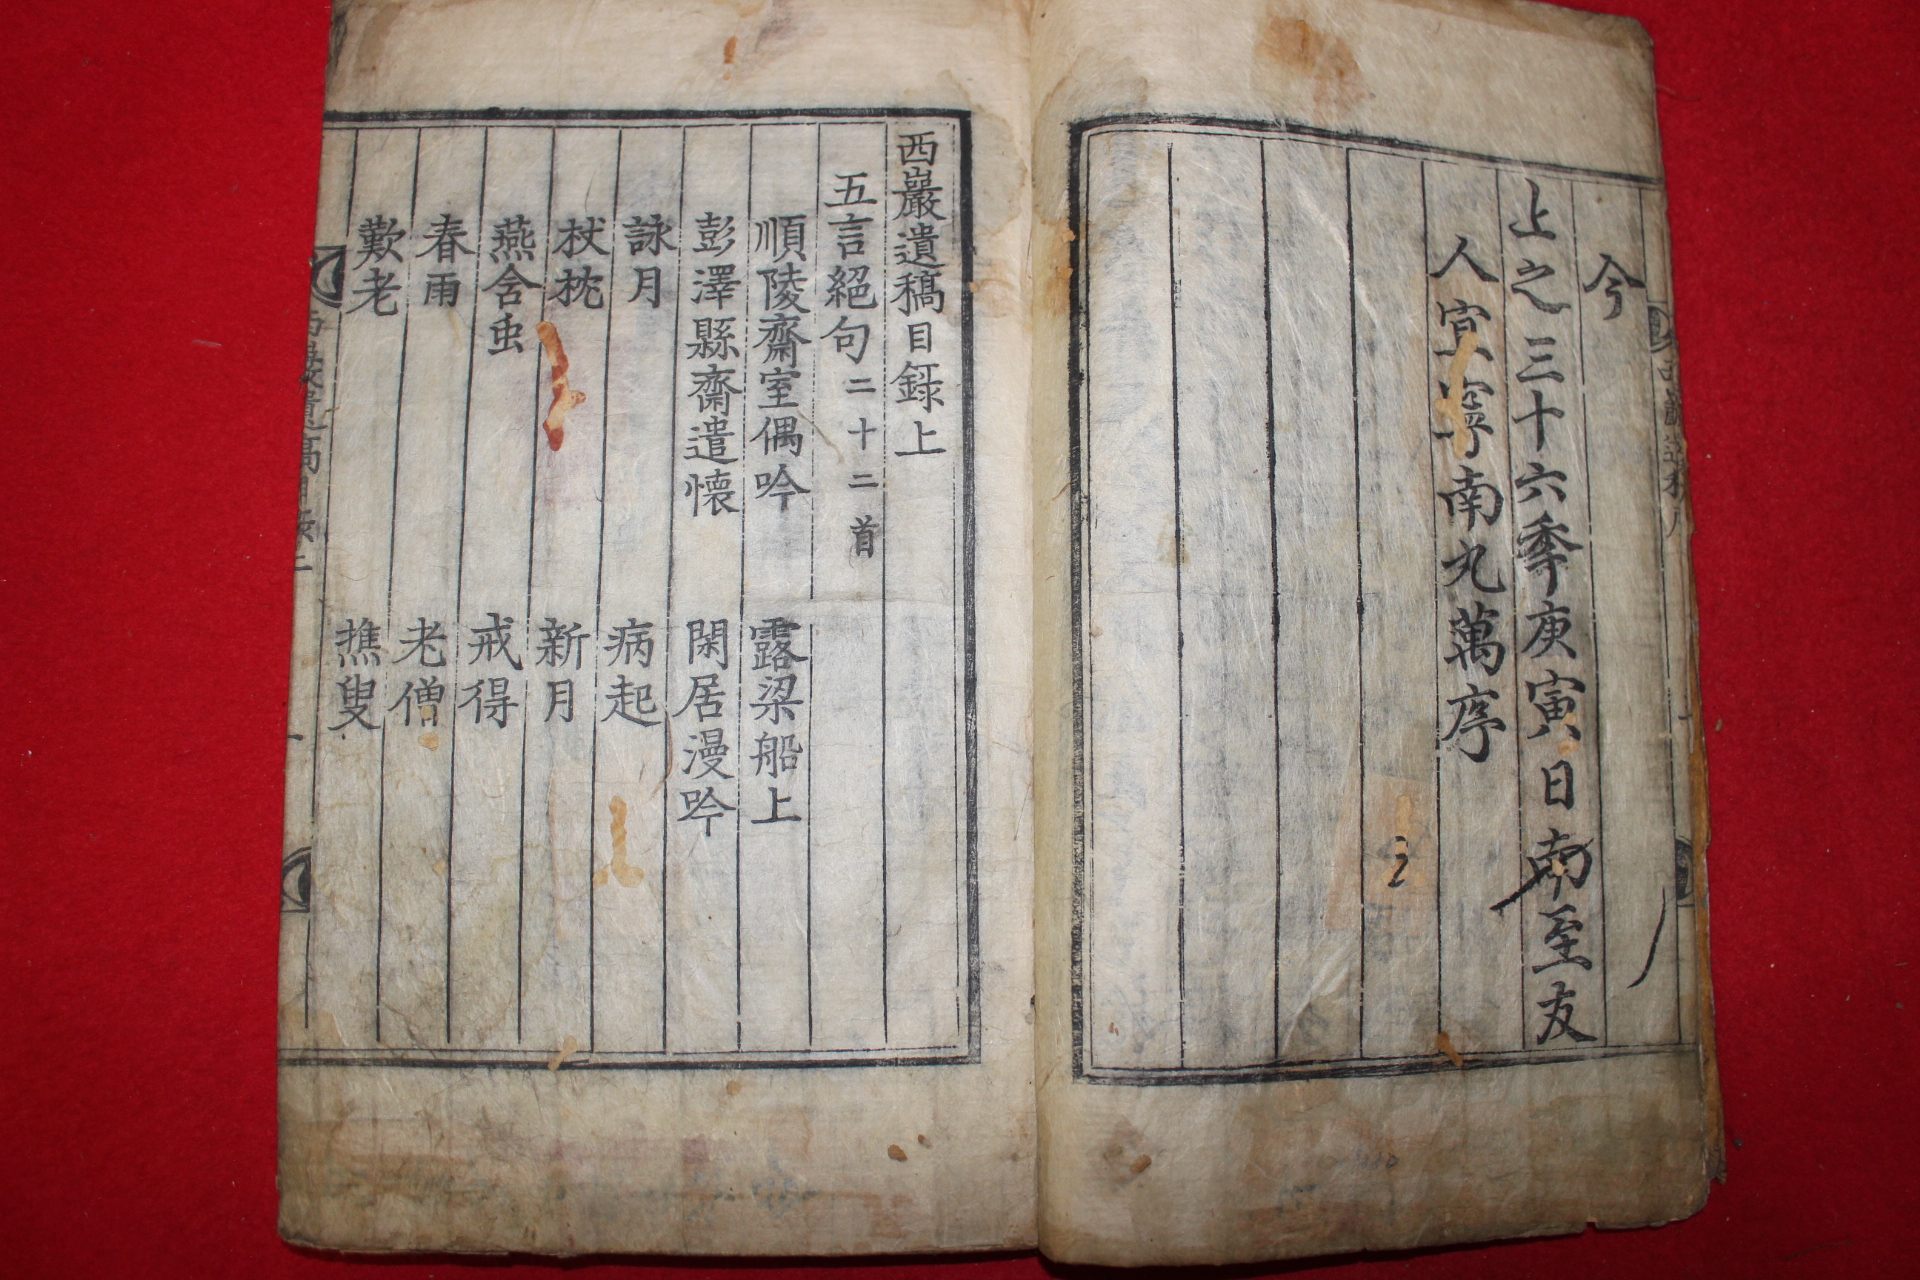 今
上之三十六季庚寅日南至友
人宜寧南九萬序
2
西巖遺稿目錄上
五言絕句二十二首
順陵齋室偶吟 露梁船上
彭澤縣齋遣懷 閑居漫吟
詠月 病起
杖枕 新月
燕含虫 戒得
春雨 老僧
歎老 樵叟